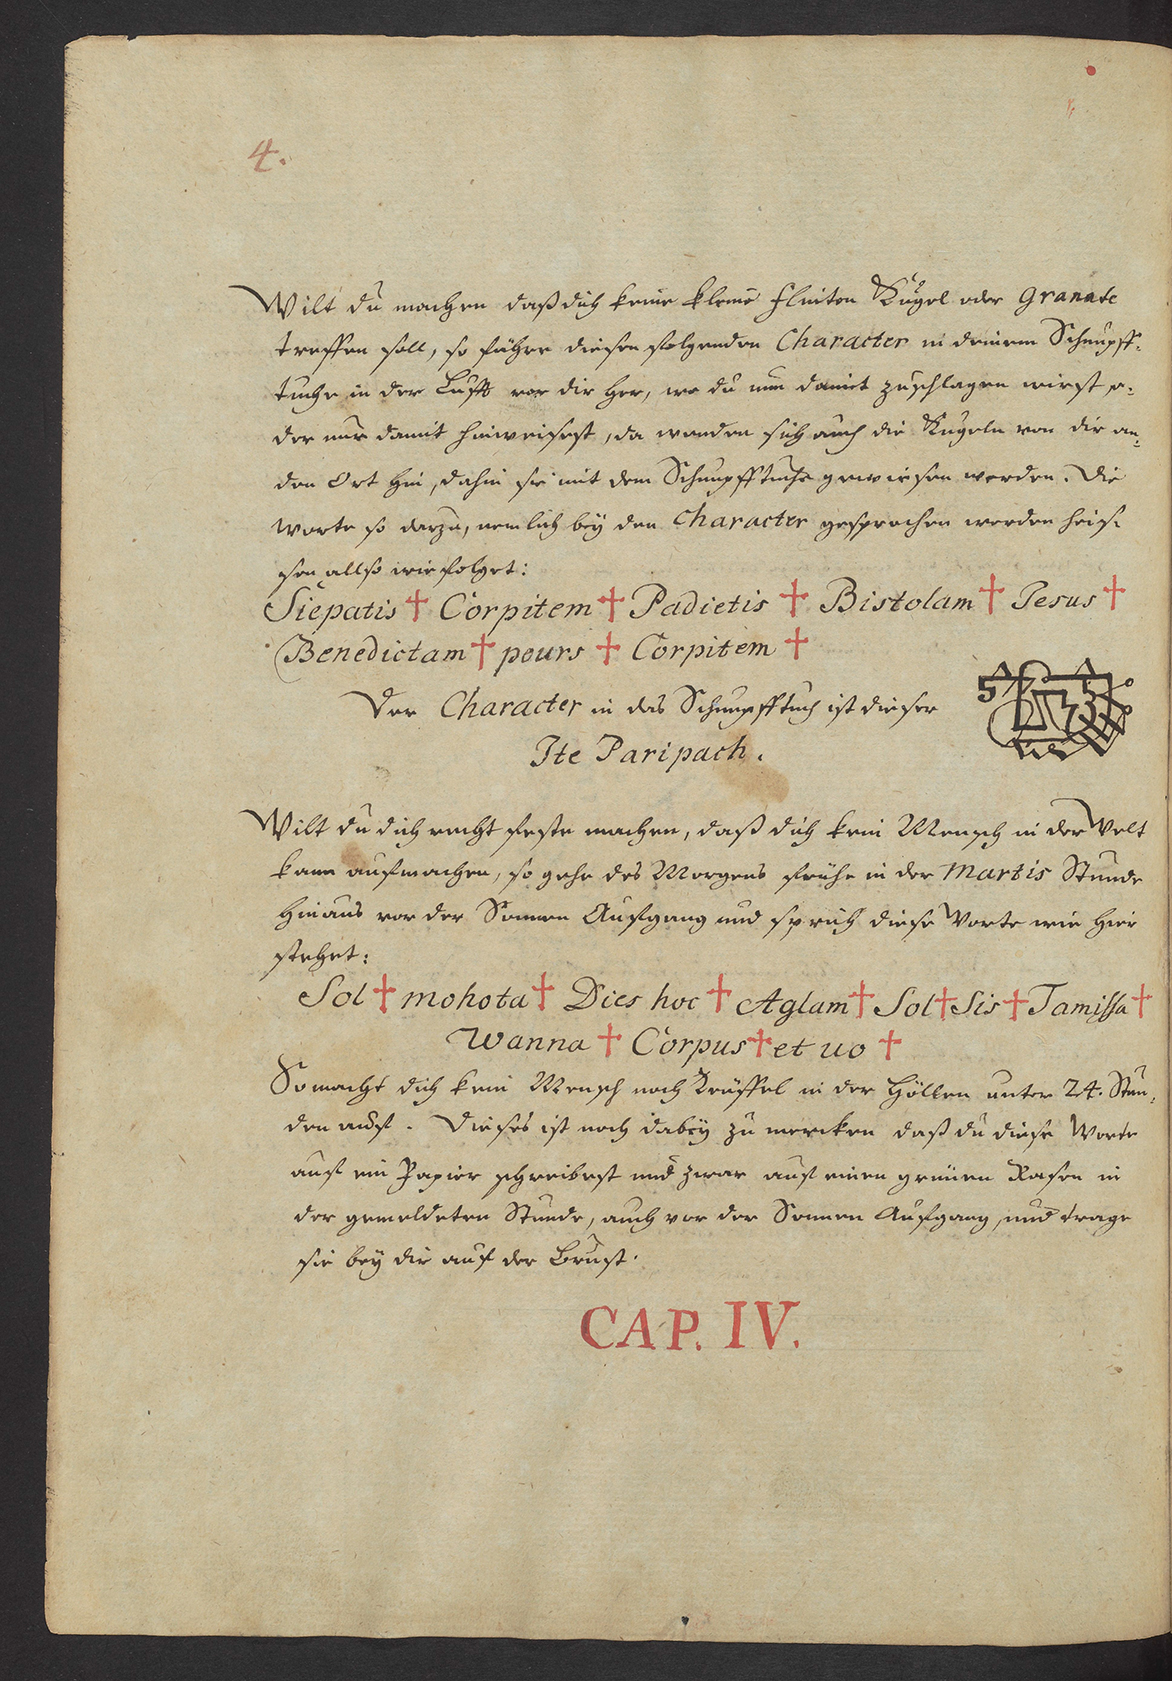 4.
Wilt du machen daß dich keine kleine Flinten Kugel oder Granate
treffen soll, so führe diesen folgenden Character in deinem Schnupff-
tuche in der Lufft vor dir her, wo du nun damit zuschlagen wirst o-
der nur damit hinweisest, da wenden sich auch die Kugeln von dir an
den Ort hin, dahin sie mit dem Schnupfftuche gewiesen werden. Die
Worte so darzu, nemlich bey den Character gesprochen werden heis-
sen allso wie folget:
Siepatis † Corpitem † Padietis † Bistolam † Jesus †
Benedictam † peurs † Corpitem †
Der Character in das Schnupfftuch ist dieser
Ite Paripach.
Wilt du dich recht feste machen, daß dich kein Mensch in der Welt
kann aufmachen, so gehe des Morgens frühe in der Martis Stunde
hinaus vor der Sonnen Aufgang und sprich diese Worte wie hier
stehet:
Sol † mohota † Dies hoc † Aglam † Sol † Sis † Tamissa †
Wanna † Corpus † et uo †
So macht dich kein Mensch noch Teuffel in der Höllen unter 24. Stun-
den auf. Dieses ist noch dabey zu mercken daß du diese Worte
auf ein Papier schreibest und zwar auf einen grünen Rasen in
der gemeldeten Stunde, auch vor der Sonnen Aufgang, und trage
sie bey dir auf der Brust.
CAP. IV.